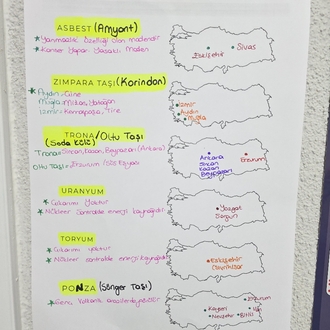 ASBEST (Amyant)
* Yanmazlık özelliği olan madendir
* Kanser Yapar. Yasaklı Maden
Eskişehir
Sivas
ZIMPARA TAŞI (Korindon)
* Aydın: Çine
Muğla: Milas, Yatağan
İzmir: Kemalpaşa, Tire
İzmir
Aydın
Muğla
TRONA/Oltu Taşı
(Soda Külü)
Trona: Sincan, Kazan, Beypazarı (Ankara)
Oltu Taşı: Erzurum
Ankara
Sincan
Kazan
Beypazarı
Erzurum
URANYUM
* Çıkarımı yoktur
* Nükleer santralde enerji kaynağıdır
Yozgat
Sorgun
TORYUM
* Çıkarımı yoktur
* Nükleer santralde enerji kaynağıdır
Eskişehir
Sivrihisar
PONZA (Sünger Taşı)
* Genç Volkanik arazilerde
Kayseri
Nevşehir
Erzurum
Van
Bitlis